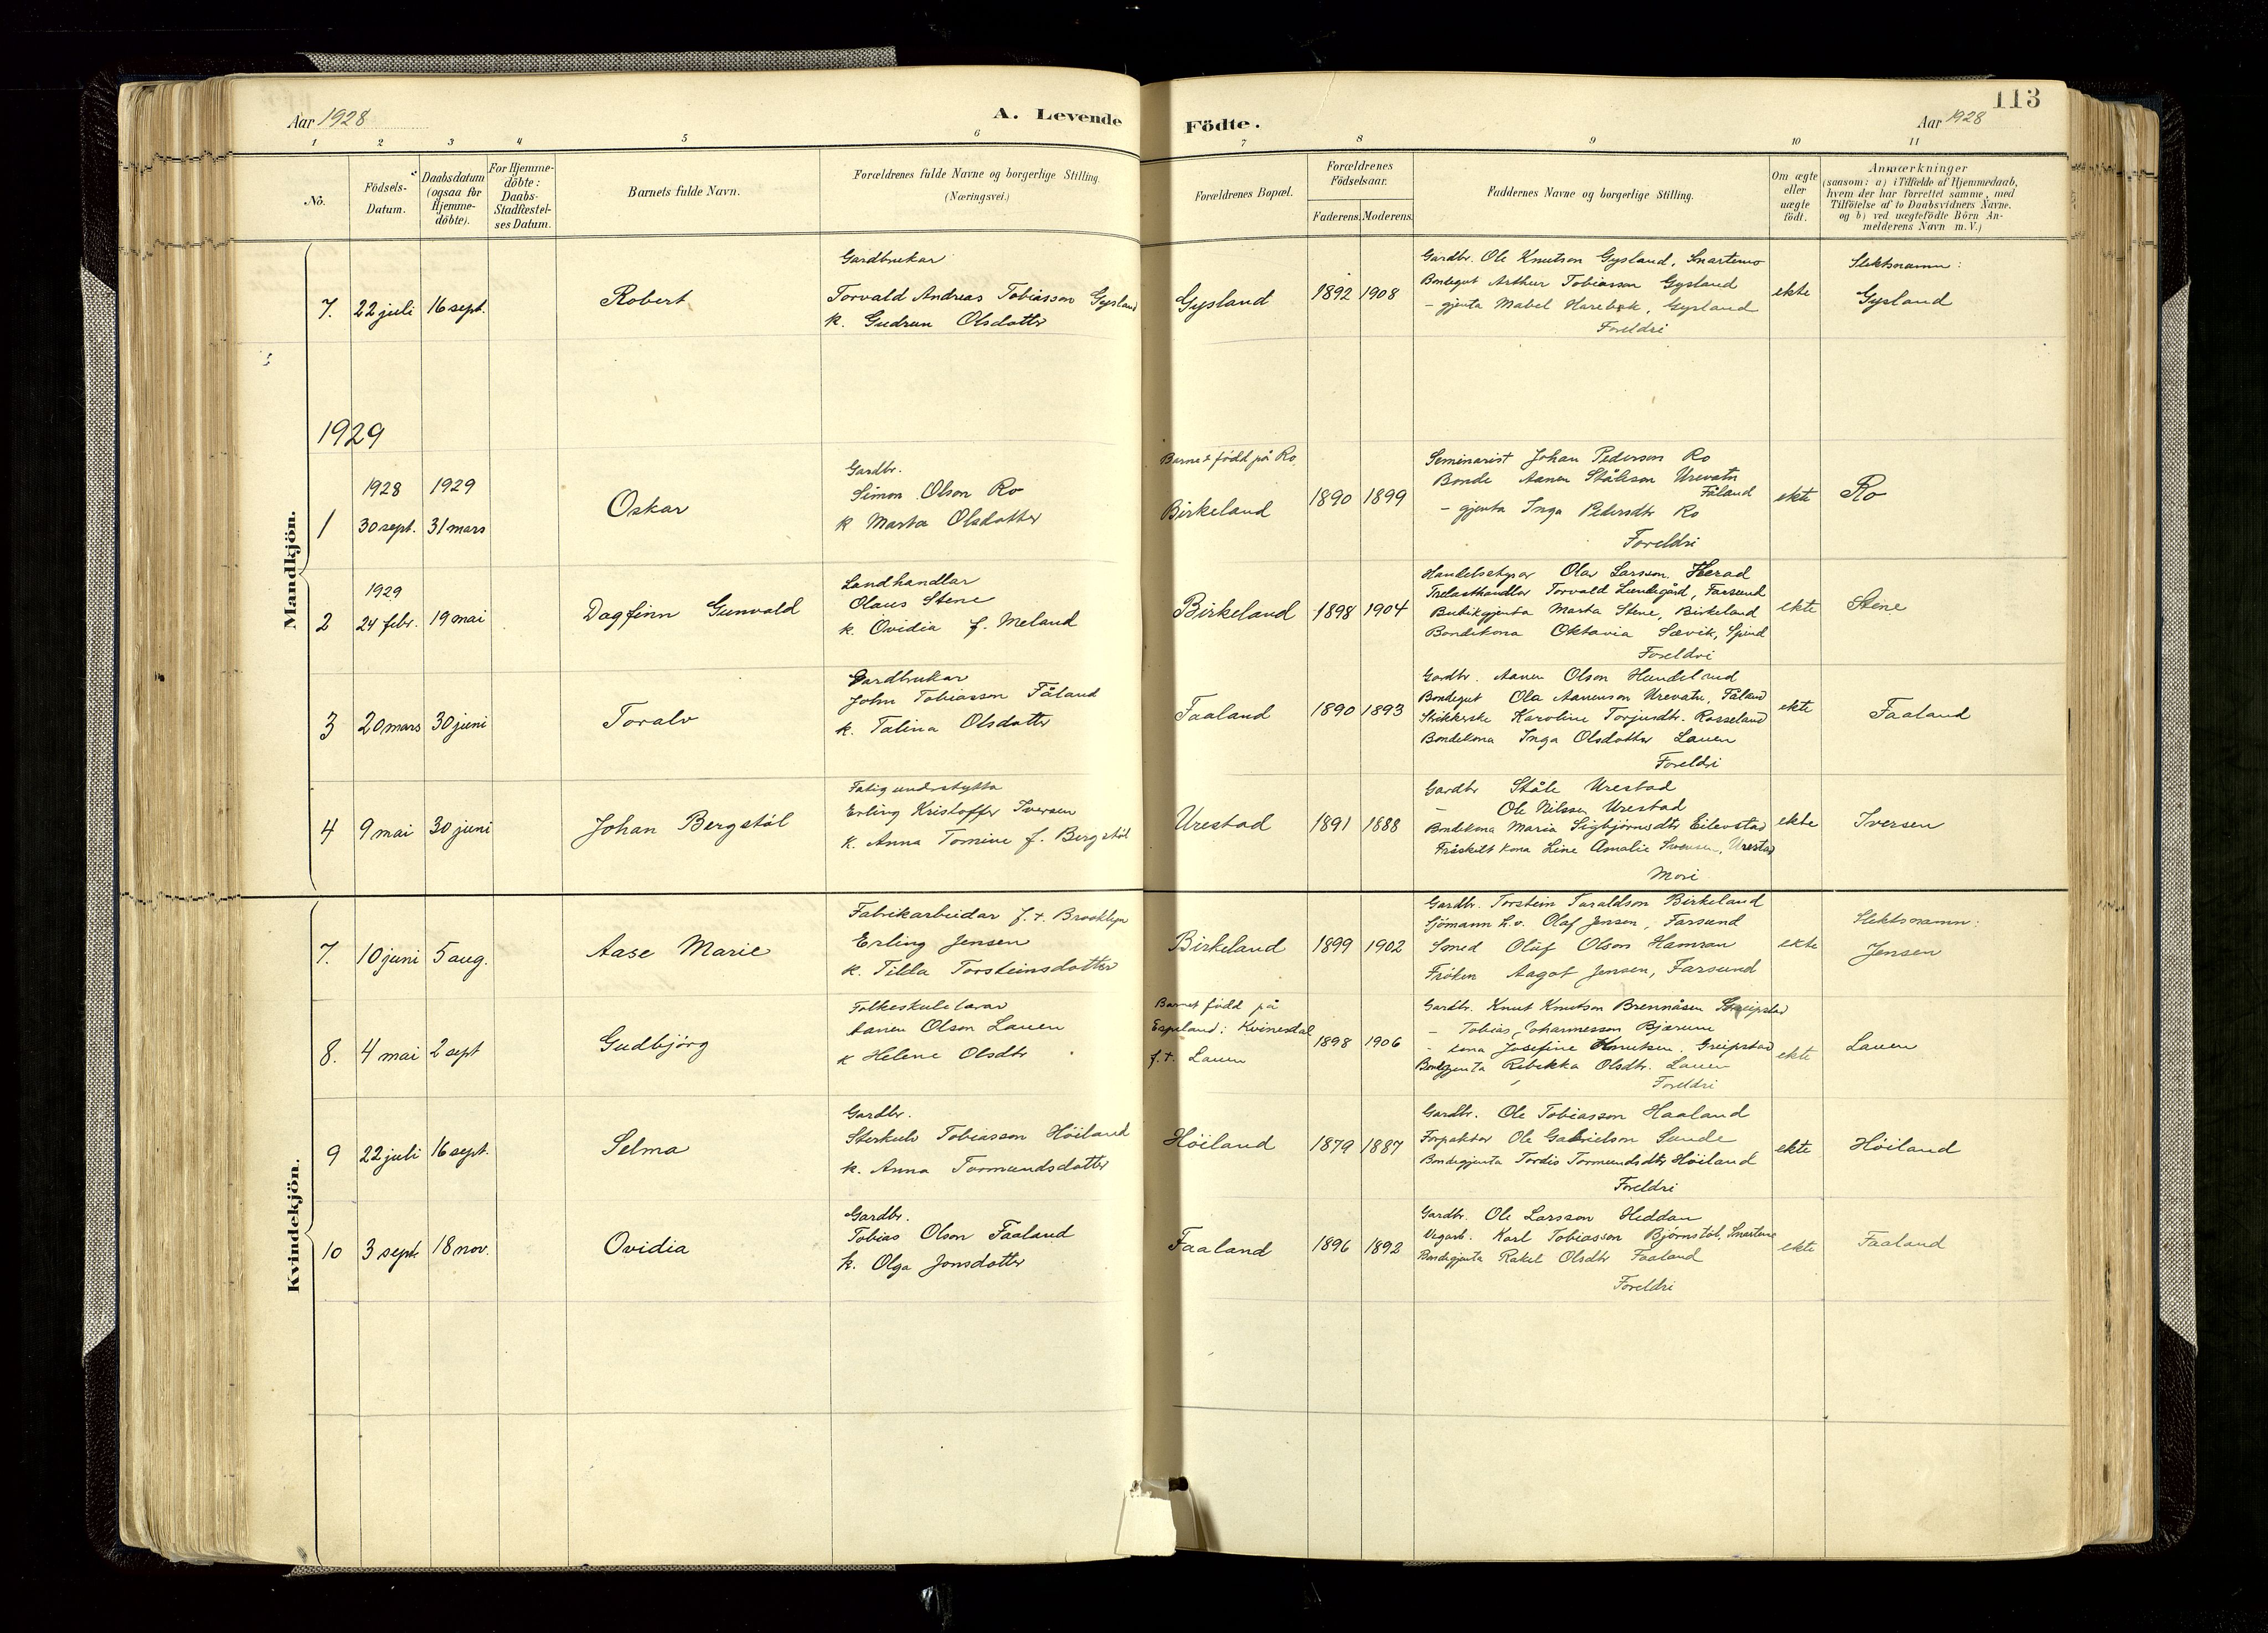 Aar 1928
A. Levende Födte.
Aar 1928
113
1 2 3 4 5 6 7 8 9 10 11
No.
Födsels-Datum.
Daabsdatum (ogsaa for Hjemme-döbte).
For Hjemme-döbte: Daabs-Stadfæstel-ses Datum.
Barnets fulde Navn.
Forældrenes fulde Navne og borgerlige Stilling.
(Næringsvei.)
Forældrenes Bopæl.
Forældrenes Födselsaar.
Faderens. Moderens.
Faddernes Navne og borgerlige Stilling.
Om ægte eller uægte födt.
Anmærkninger
(saasom: a) i Tilfælde af Hjemmedaab,
hvem der har forrettet samme, med
Tilföielse af to Daabsvidners Navne,
og b) ved uægtefödte Börn An-
melderens Navn m. V.)
Mandkjön.
7. 22 juli 16 sept.
Robert
Gardbrukar
Torvald Andreas Tobiasson Gysland
k. Gudrun Olsdotter
Gysland
1892 1908
Gardbr. Ole Knutson Gysland, Snartemo
Bondegut Arthur Tobiasson Gysland
- gjenta Mabel Harebak, Gysland
Foreldri
ekte
Slektsnamn:
Gysland
1929
1928 1929
1 30 sept. 31 mars
Oskar
Gardbr.
Simon Olson Ro
k Marta Olsdotter
Barnet född på Ro
Birkeland
1890 1899
Seminarist Johan Pederson Ro
Bonde Aanen Ståleson Urevatn
Fåland
- gjenta Inga Pedersdtr Ro
Foreldri
ekte
Ro
1929
2 24 febr. 19 mai
Dagfinn Gunvald
Landhandlar
Olaus Stene
k. Ovidia f. Meland
Birkeland
1898 1904
Handelsstyrar Olav Larsson, Herad
Trelasthandlar Torvald Lundegård, Farsund
Butikgjenta Marta Stene, Birkeland
Bondekona Oktavia Sævik, Spind
Foreldri
ekte
Stene
3 20 mars 30 juni
Toralv
Gardbrukar
John Tobiasson Fåland
k. Talina Olsdotter
Faaland
1890 1893
Gardbr. Aanen Olson Hundeland
Bondegut Ola Aanenson Urevatn, Fåland
Strikkerske Karoline Torjusdtr. Rosseland
Bondekona Inga Olsdotter Lauen
Foreldri
ekte
Faaland
4 9 mai 30 juni
Johan Bergstøl
Fatigunderstytta
Erling Kristoffer Iversen
k. Anna Tomine f. Bergstøl
Urestad
1891 1888
Gardbr Ståle Urestad
- Ole Nilssen Urestad
Bondekona Maria Sigbjørnsdtr Eilevstad
Fråskilt kona Line Amalie Svensen, Urestad
Mori
ekte
Iversen
Kvindekjön.
7. 10 juni 5 aug.
Aase Marie
Fabrikarbeidar f. t. Brooklyn
Erling Jensen
k. Tilla Torsteinsdotter
Birkeland
1899 1902
Gardbr. Torstein Taraldson Birkeland
Sjömann h.v. Olaf Jensen, Farsund
Smed Oluf Olson Hamran
Frøken Aagot Jensen, Farsund
ekte
Slektsnamn:
Jensen
8. 4 mai 2 sept
Gudbjörg
Folkeskulelærar
Aanen Olson Lauen
k Helene Olsdtr
Barnet född på
Espeland i Kvinesdal
f. t. Lauen
1898 1906
Gardbr. Knut Knutson Brennåsen Greipstad
- Tobias Johannesson Bjærum
- kona Josefine Knutsen, Greipstad
Bondegjenta Rebekka Olsdtr. Lauen
Foreldri
ekte
Lauen
9 22 juli 16 sept.
Selma
Gardbr.
Sterkulv Tobiasson Höiland
k. Anna Tormundsdotter
Höiland
1879 1887
Gardbr. Ole Tobiasson Haaland
Forpaktar Ole Gabrielson Sande
Bondegjenta Tordis Tormundsdtr Höiland
Foreldri
ekte
Höiland
10 3 sept 18 nov.
Ovidia
Gardbr.
Tobias Olson Faaland
k. Olga Jonsdotter
Faaland
1896 1892
Gardbr. Ole Larsson Heddan
Vegarb. Karl Tobiasson Bjørnstøl, Snartemo
Bondegjenta Rakel Olsdtr Faaland
Foreldri
ekte
Faaland